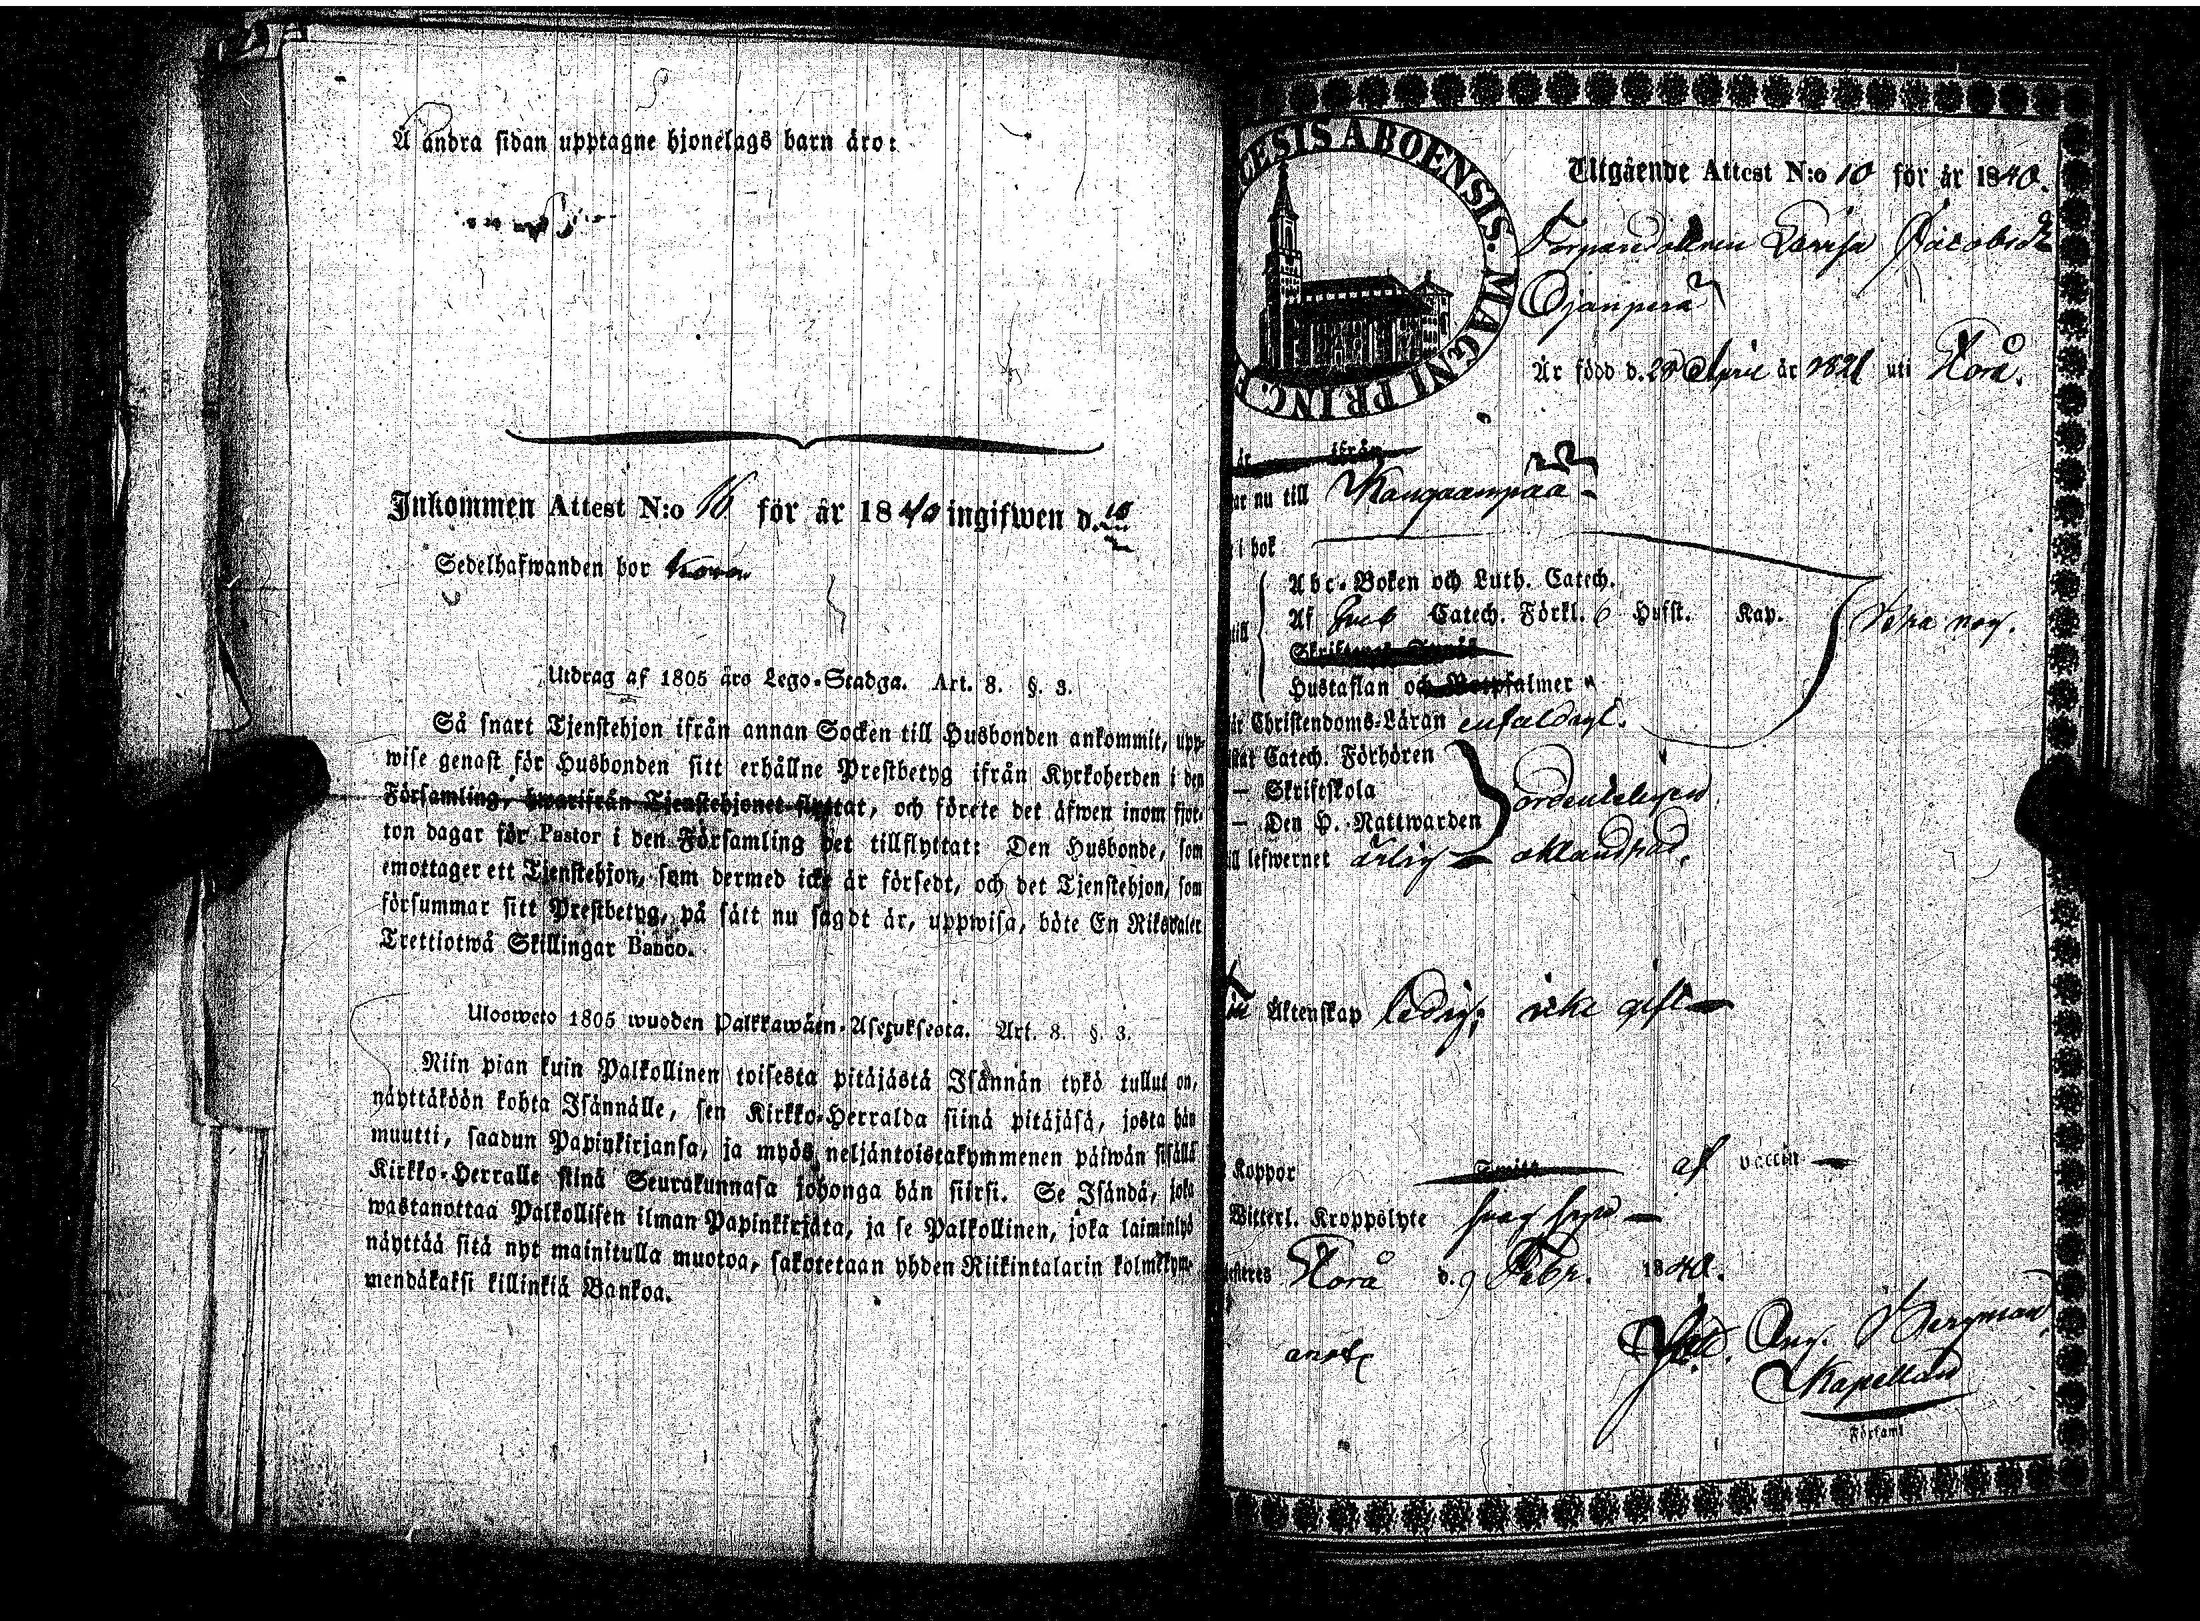 Å andra sidan upptagne hjonelags barn äro:
Inkommen Attest N:o 16 för år 1840 ingifwen d. 18
Sedelhafwanden bor
Utdrag af 1805 års Lego-Stadga. Art. 8. §. 3.
Så snart Tjenstehjon ifrån annan Socken till Husbonden ankommit, upp-
wise genast för Husbonden sitt erhållne Prestbetyg ifrån Kyrkoherden i den
Församling, hwarifrån Tjenstehjonet flyttat, och förete det äfwen inom fjor-
ton dagar för Pastor i den Församling det tillflyttat: Den Husbonde, som
emottager ett Tjenstehjon, som dermed icke är försedt, och det Tjenstehjon, som
försummar sitt Prestbetyg, på sätt nu sagdt är, uppwisa, böte En Riksdaler
Trettiotwå Skillingar Banco.
Ulosweto 1805 wuoden Palkkawäen-Asetuksesta. Art. 8. §. 3.
Niin pian kuin Palkollinen toisesta pitäjästä Isännän tykö tullut on,
näyttäköön kohta Isännälle, sen Kirkko-Herralda siinä pitäjäsä, josta hän
muutti, saadun Papinkirjansa, ja myös neljäntoistakymmenen päiwän sisällä
Kirkko-Herralle siinä Seurakunnasa johonga hän siirsi. Se Isändä, joka
wastanottaa Palkollisen ilman Papinkirjata, ja se Palkollinen, joka laiminlyö
näyttää sitä nyt mainitulla muotoa, sakotetaan yhden Riikintalarin kolmekym-
mendäkaksi killinkiä Bankoa.
CESIS ABOENSIS. MAGNI PRINC. F
Utgående Attest N:o 10 för år 1840.
Torparedottren Lovisa Jacobsdr
Ojanperä
Är född d. 28 April år 1821 uti Norå.
är ifrån
ar nu till Kangaanpää
i bok
till
Abc-Boken och Luth. Catech.
Af Catech. Förkl. 6 Hufst. Kap.
bra nog.
Hustaflan och Botpsalmer
Christendoms-Läran enfaldigt.
Catech. Förhören
— Skriftskola
ordenteligen
— Den H. Nattwarden
till lefwernet ärlig oklandrad.
Äktenskap ledig; icke gift
Koppor af vaccin
Witterl. Kroppslyte svag syn
Norå d. 9 Febr. 1840.
Aug. Bergman
Kapellan
Församl